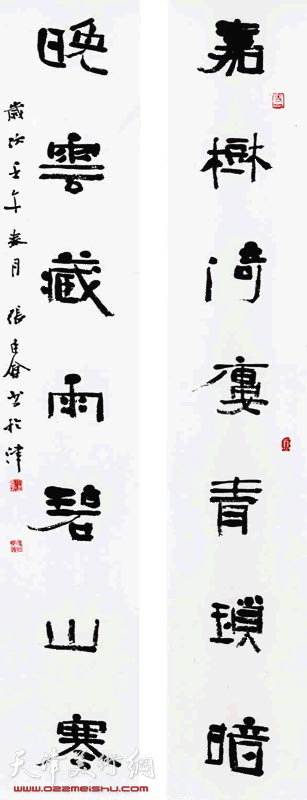 嘉樹倚廔青瑣暗
晚雲藏雨碧山寒
歲次壬午春月張建會书於津
天津美术网
www.022meishu.com